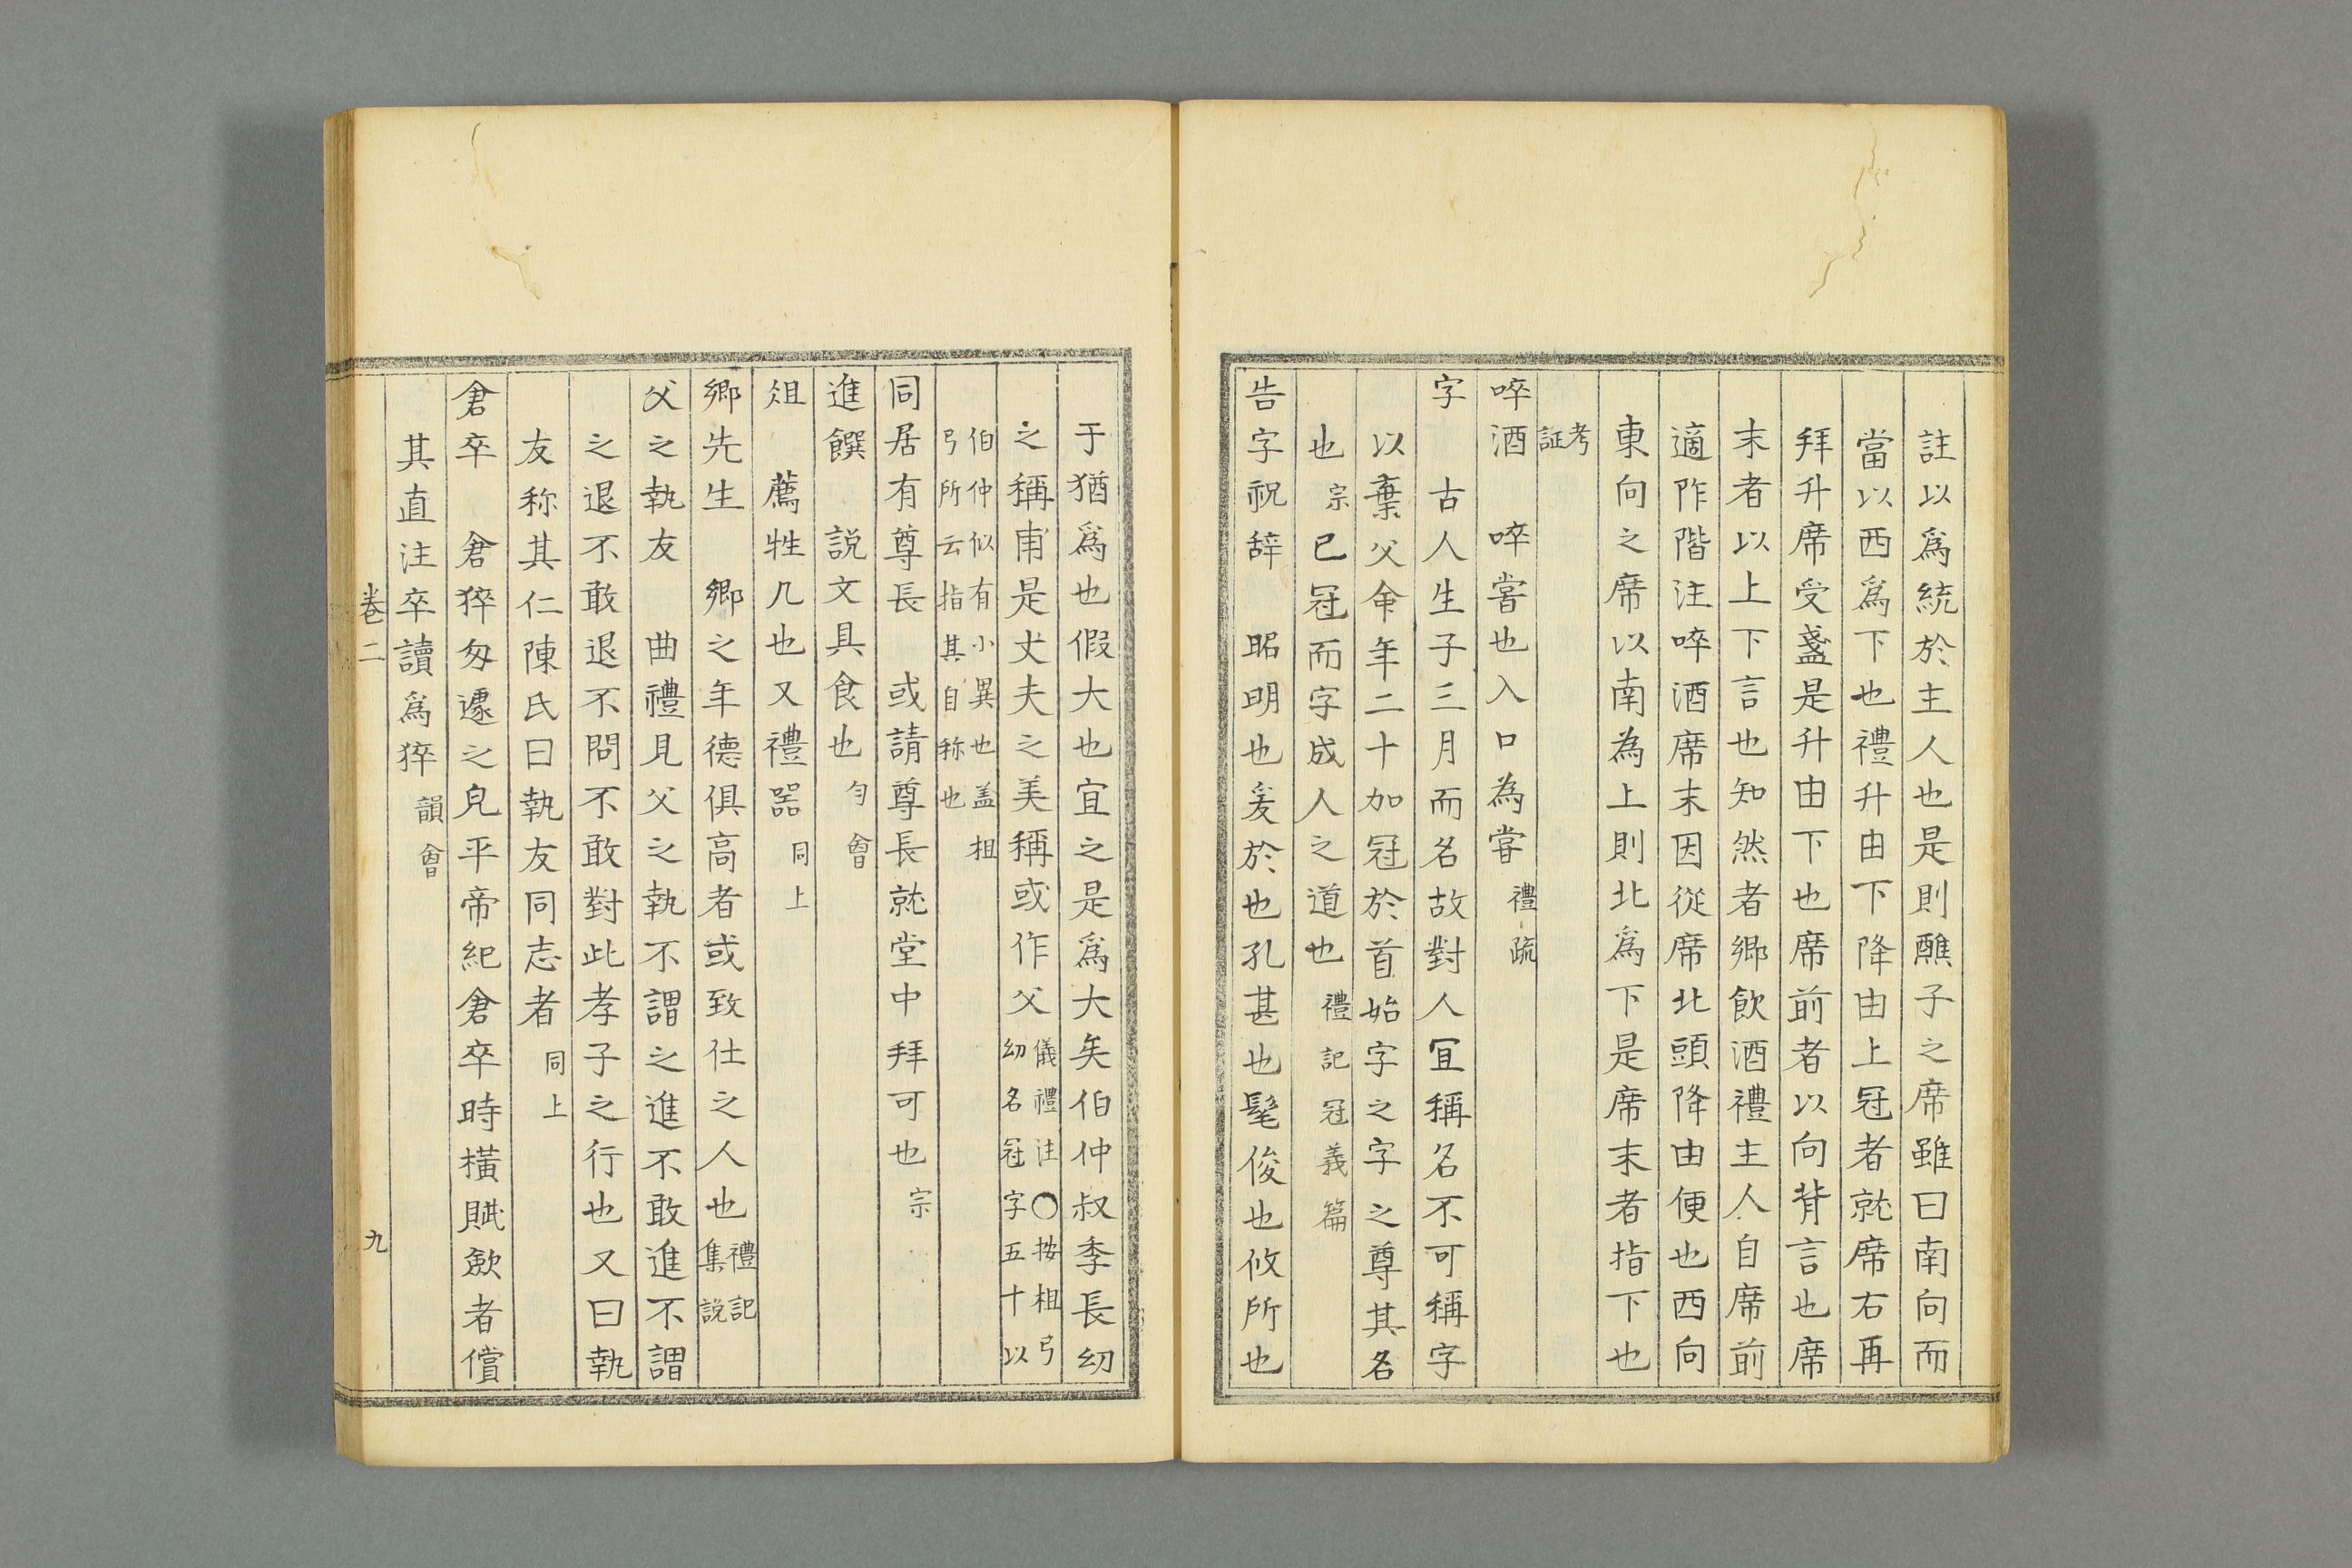 註以爲統於主人也是則醮子之席雖曰南向而
當以西爲下也禮升由下降由上冠者就席右再
拜升席受盞是升由下也席前者以向背言也席
末者以上下言也知然者鄉飮酒禮主人自席前
適阼階注啐酒席末因從席北頭降由便也西向
東向之席以南為上則北爲下是席末者指下也
考証
啐酒　啐嘗也入口為嘗　禮疏
字　古人生子三月而名故對人冝稱名不可稱字
以棄父命年二十加冠於首始字之字之尊其名
也　宗　已冠而字成人之道也　禮記冠義篇
告字祝辞　昭明也爰於也孔甚也髦俊也攸所也
于猶爲也假大也宜之是爲大矣伯仲叔季長幼
之稱甫是丈夫之美稱或作父　儀禮注〇按柤弓幼名冠字五十以
伯仲似有小異也盖柤弓所云指其自称也
同居有尊長　或請尊長就堂中拜可也　宗
進饌　說文具食也　勻會
俎　薦牲几也又禮器　同上
鄉先生　鄉之年德俱高者或致仕之人也　禮記集說
父之執友　曲禮見父之執不謂之進不敢進不謂
之退不敢退不問不敢對此孝子之行也又曰執
友称其仁陳氏曰執友同志者　同上
倉卒　倉猝匆遽之皃平帝紀倉卒時橫賦歛者償
其直注卒讀爲猝　韻會
卷二
九